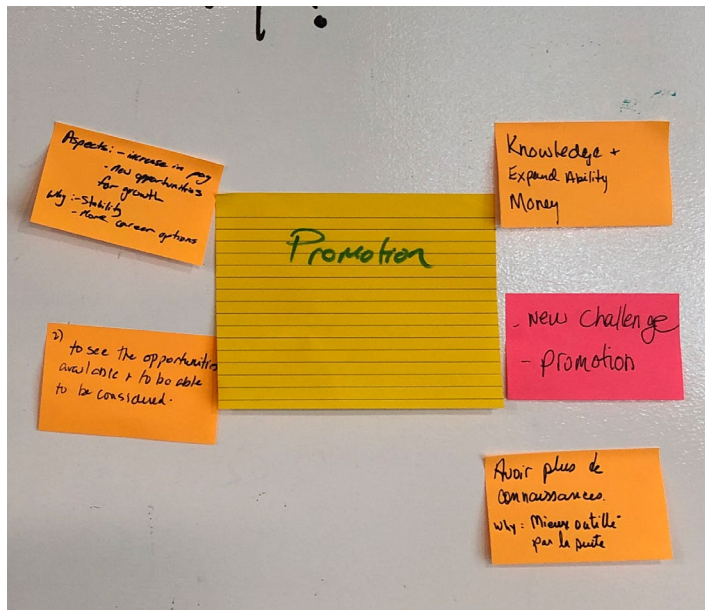 Aspects: - increase in pay
- new opportunities
for growth
Why: - Stability
- More career options
Promotion
Knowledge +
Expand Ability
Money
- New Challenge
- promotion
2)
to see the opportunities
available + to be able
to be considered.
Avoir plus de
connaissances.
Why: Mieux outillé
par la suite